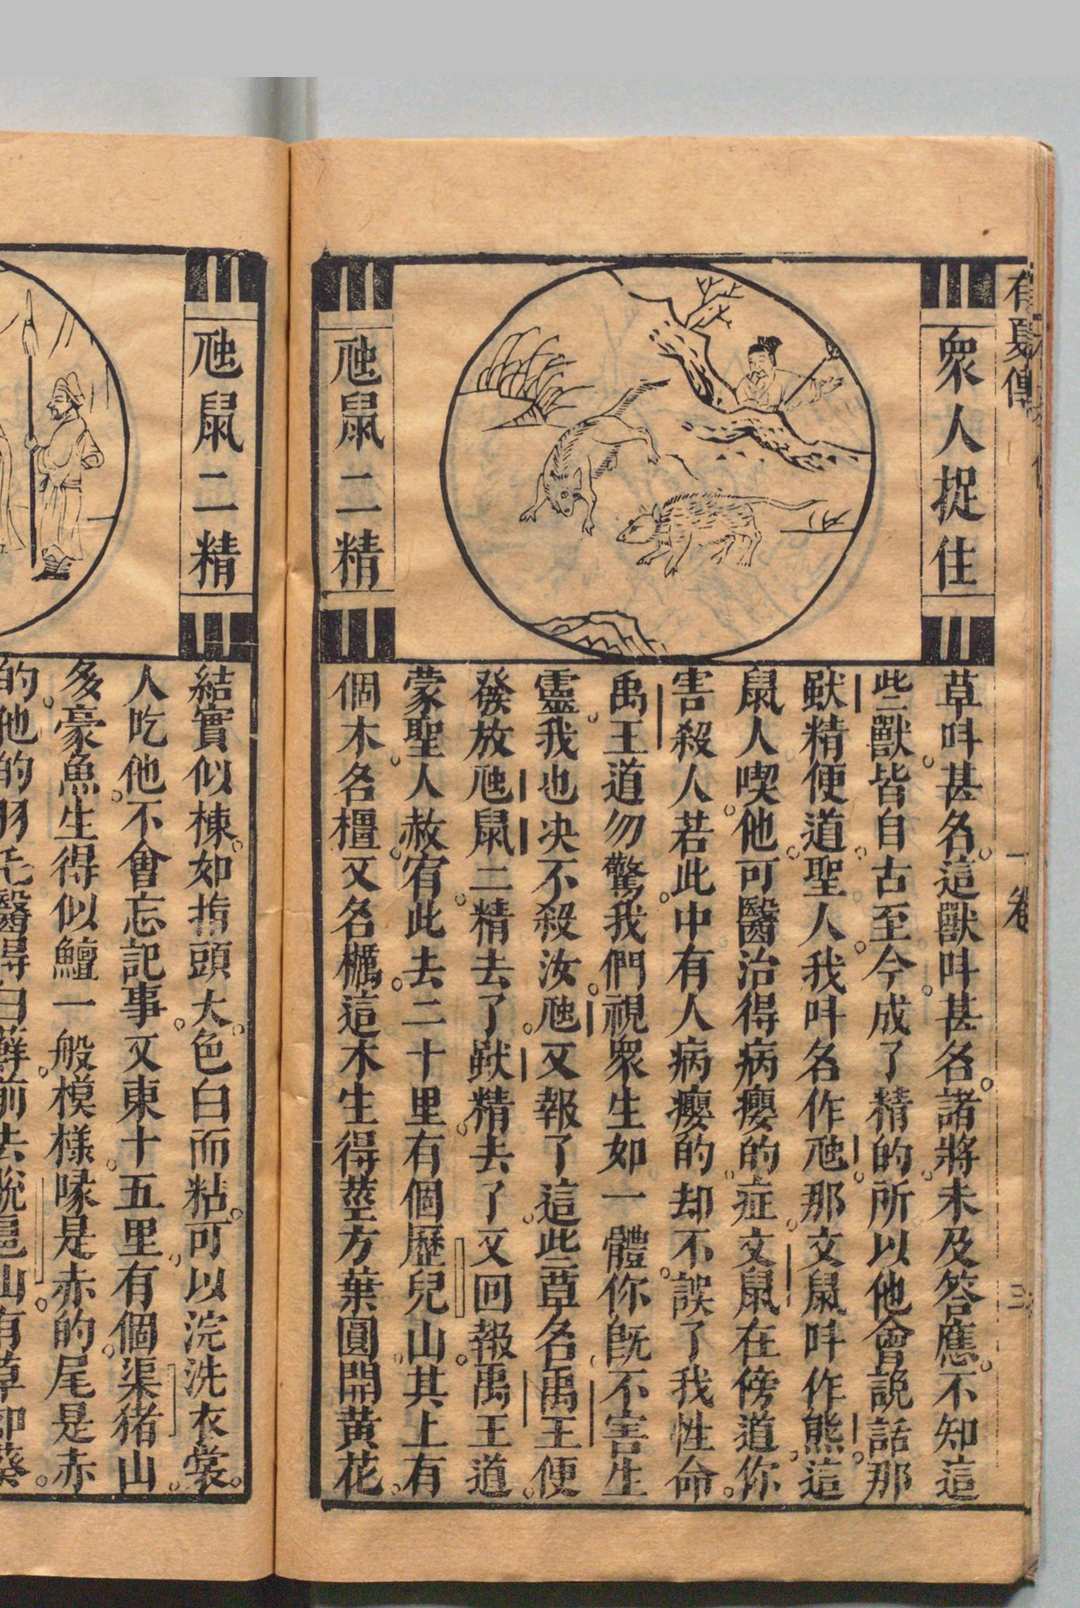 有夏傳
一卷
三
衆人捉住
𧈧鼠二精
草呌甚名這獸呌甚名諸將未及答應不知這
些獸皆自古至今成了精的所以他會説話那
獃精便道聖人我呌名作𧈧那文䑕呌作熊這
䑕人喫他可醫治得病癭的症文䑕在傍道你
害殺人若此中有人病癭的却不誤了我性命
禹王道勿驚我們視衆生如一體你旣不害生
靈我也决不殺汝𧈧又報了這些草名禹王便
發放𧈧䑕二精去了獃精去了又回報禹王道
蒙聖人赦宥此去二十里有個歷兒山其上有
個木名橿又名櫔這木生得莖方葉圓開黃花
𧈧鼠二精
結實似楝如指頭大色白而粘可以浣洗衣裳
人吃他不會忘記事又東十五里有個渠猪山
多豪魚生得似鱣一般模樣喙是赤的尾是赤
的他的羽毛醫得白蘚前去脫扈山有草